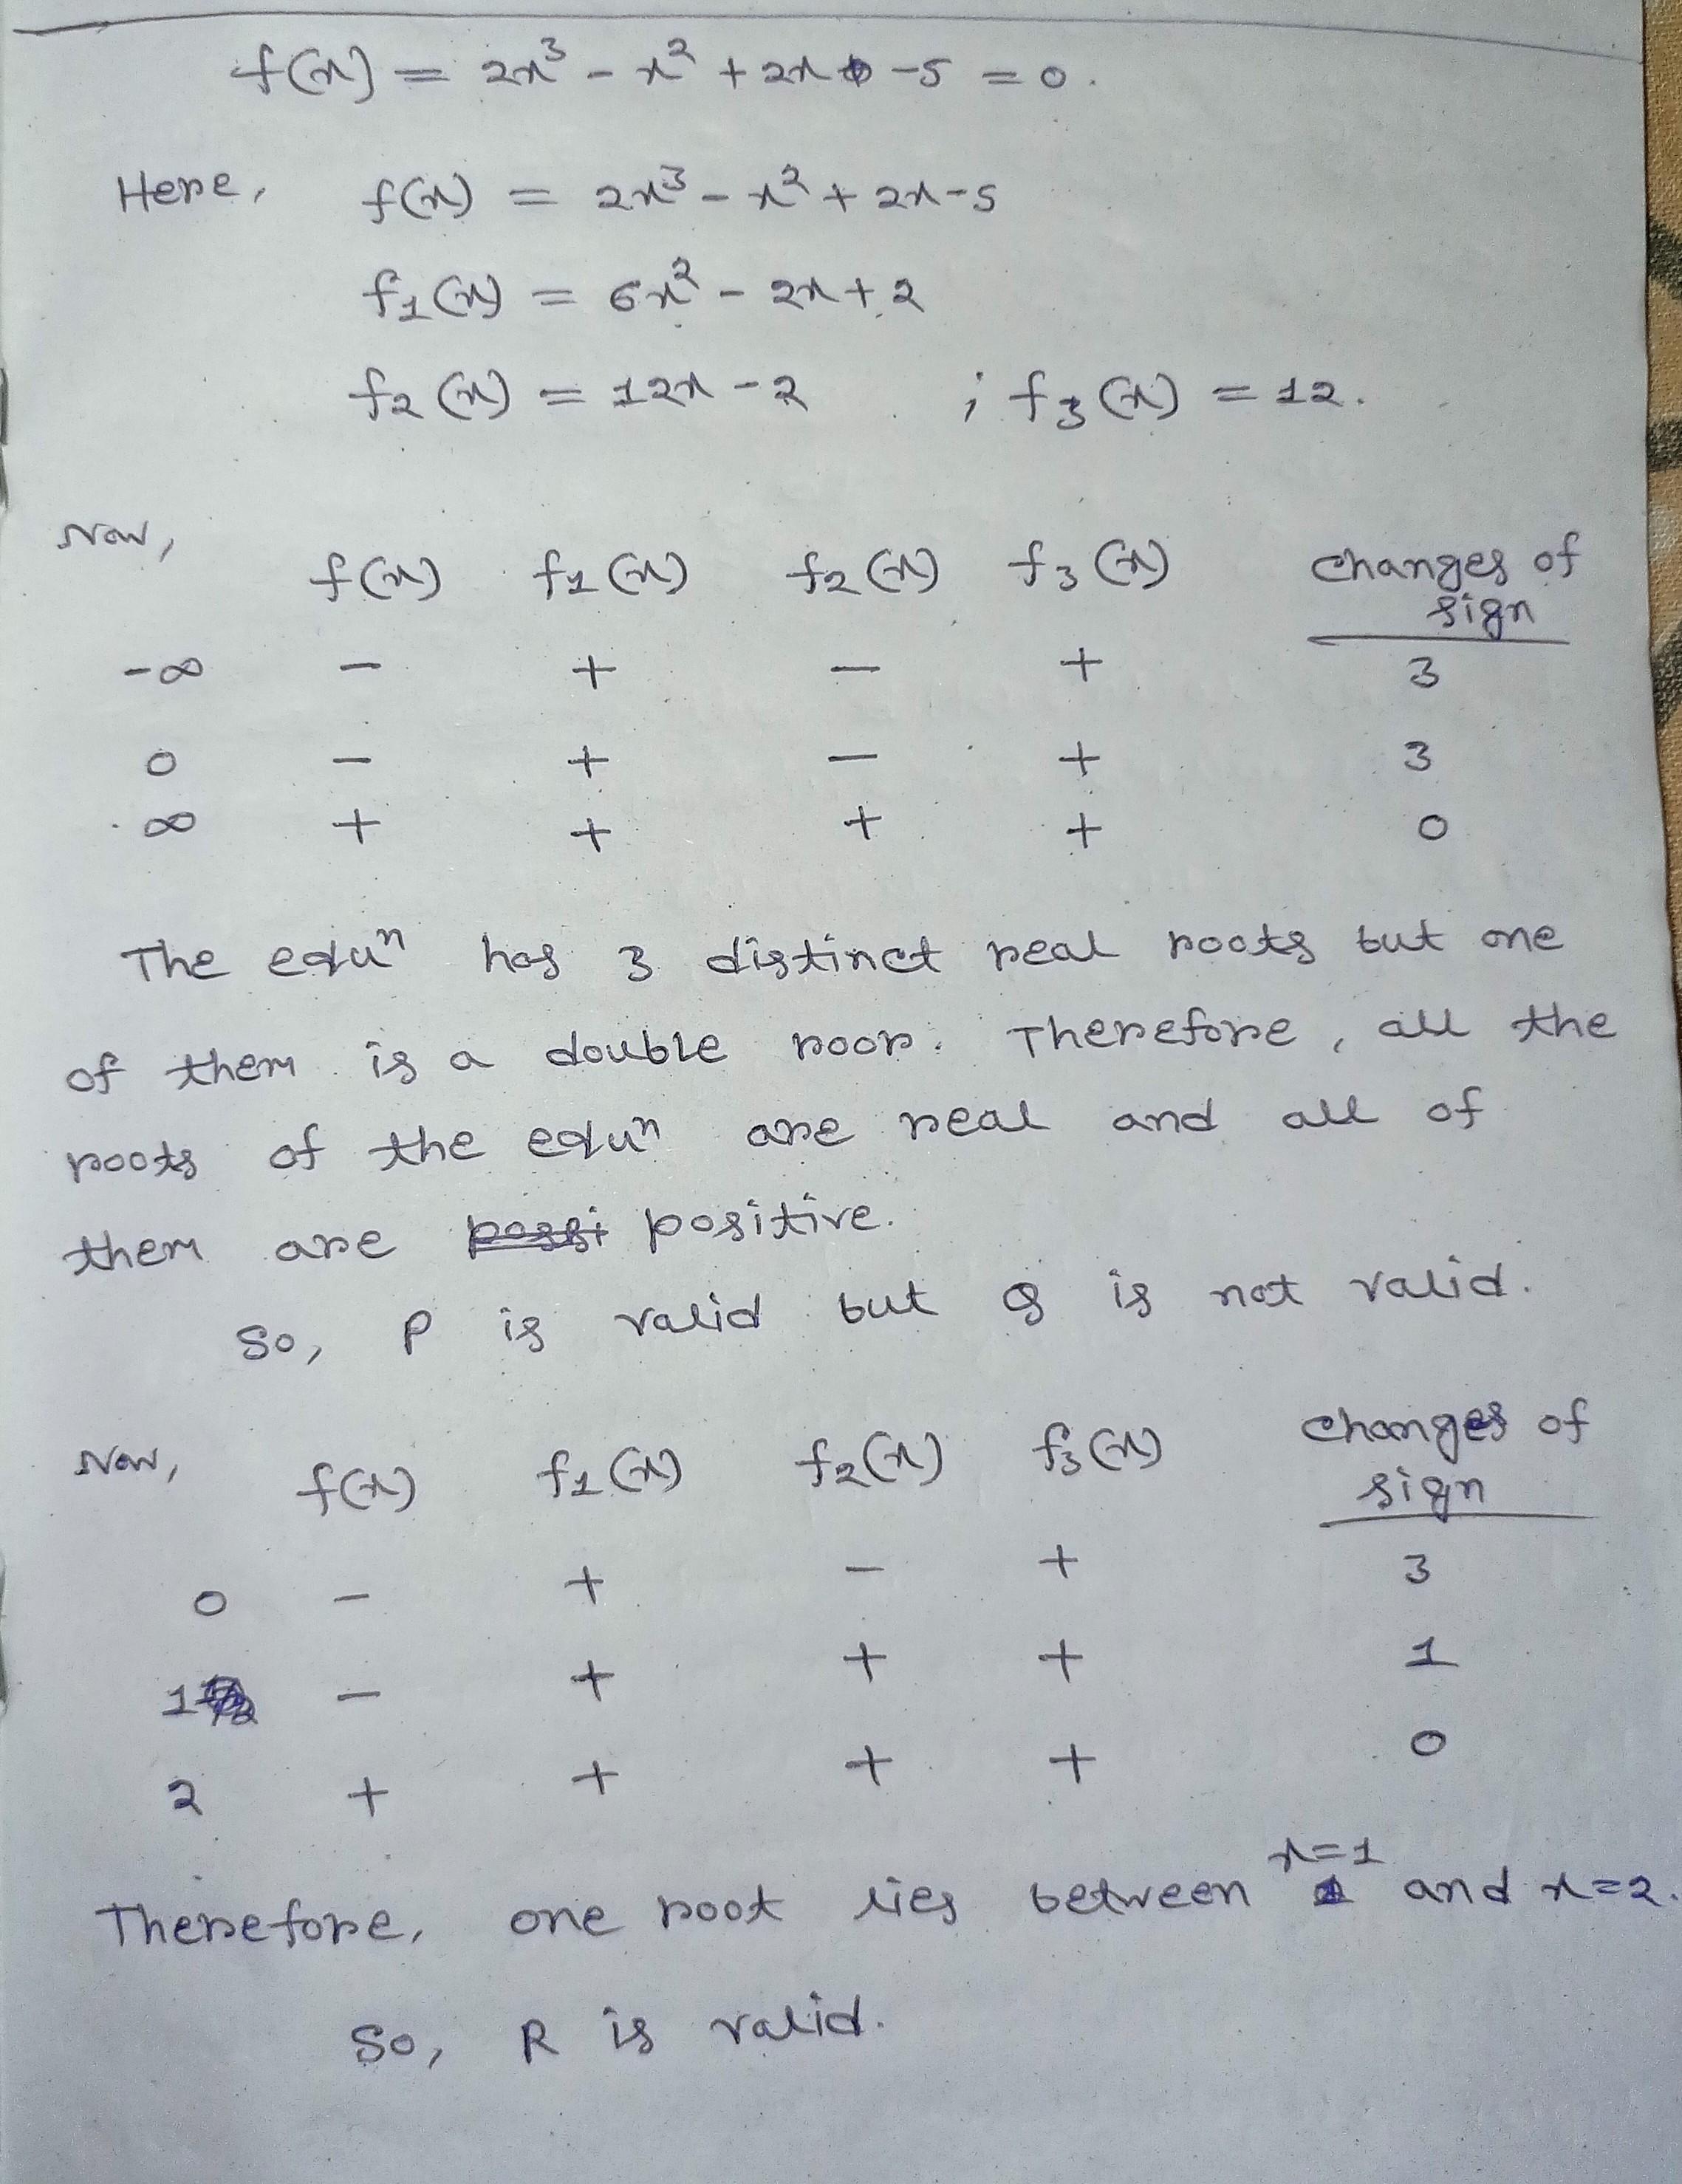 f(x) = 2x³ - x² + 2x -5 = 0.
Here, f(x) = 2x³ - x² + 2x-5
f₁(x) = 6x² - 2x + 2
f₂(x) = 12x - 2 ; f₃(x) = 12.
Now,
f(x) f₁(x) f₂(x) f₃(x) changes of
sign
-∞ - + - + 3
0 - + - + 3
∞ + + + + 0
The equⁿ has 3 distinct real roots but one
of them is a double roor. Therefore, all the
roots of the equⁿ are real and all of
them are possi positive.
So, P is valid but Q is not valid.
Now, f(x) f₁(x) f₂(x) f₃(x) changes of
sign
0 - + - + 3
1 - + + + 1
2 + + + + 0
Therefore, one root lies between x=1 and x=2.
So, R is valid.